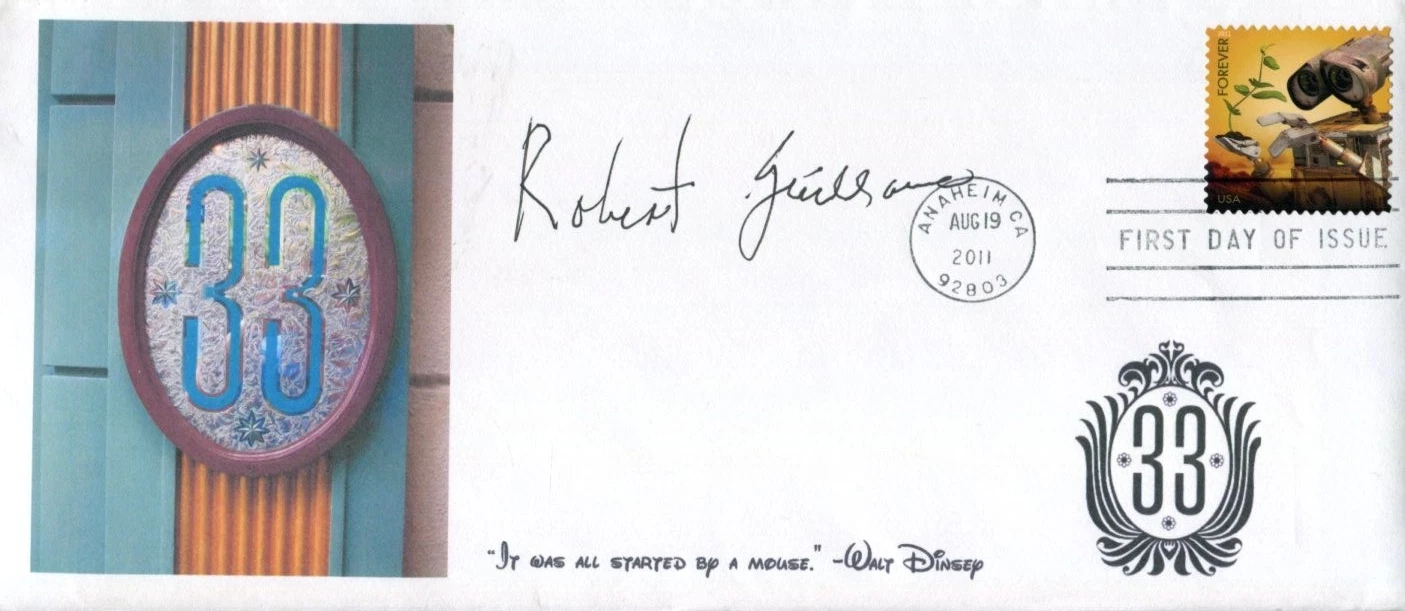 33
Robert Guillaume
FOREVER
USA
ANAHEIM CA
AUG 19
2011
92803
FIRST DAY OF ISSUE
33
"It was all started by a mouse." -Walt Dinsey